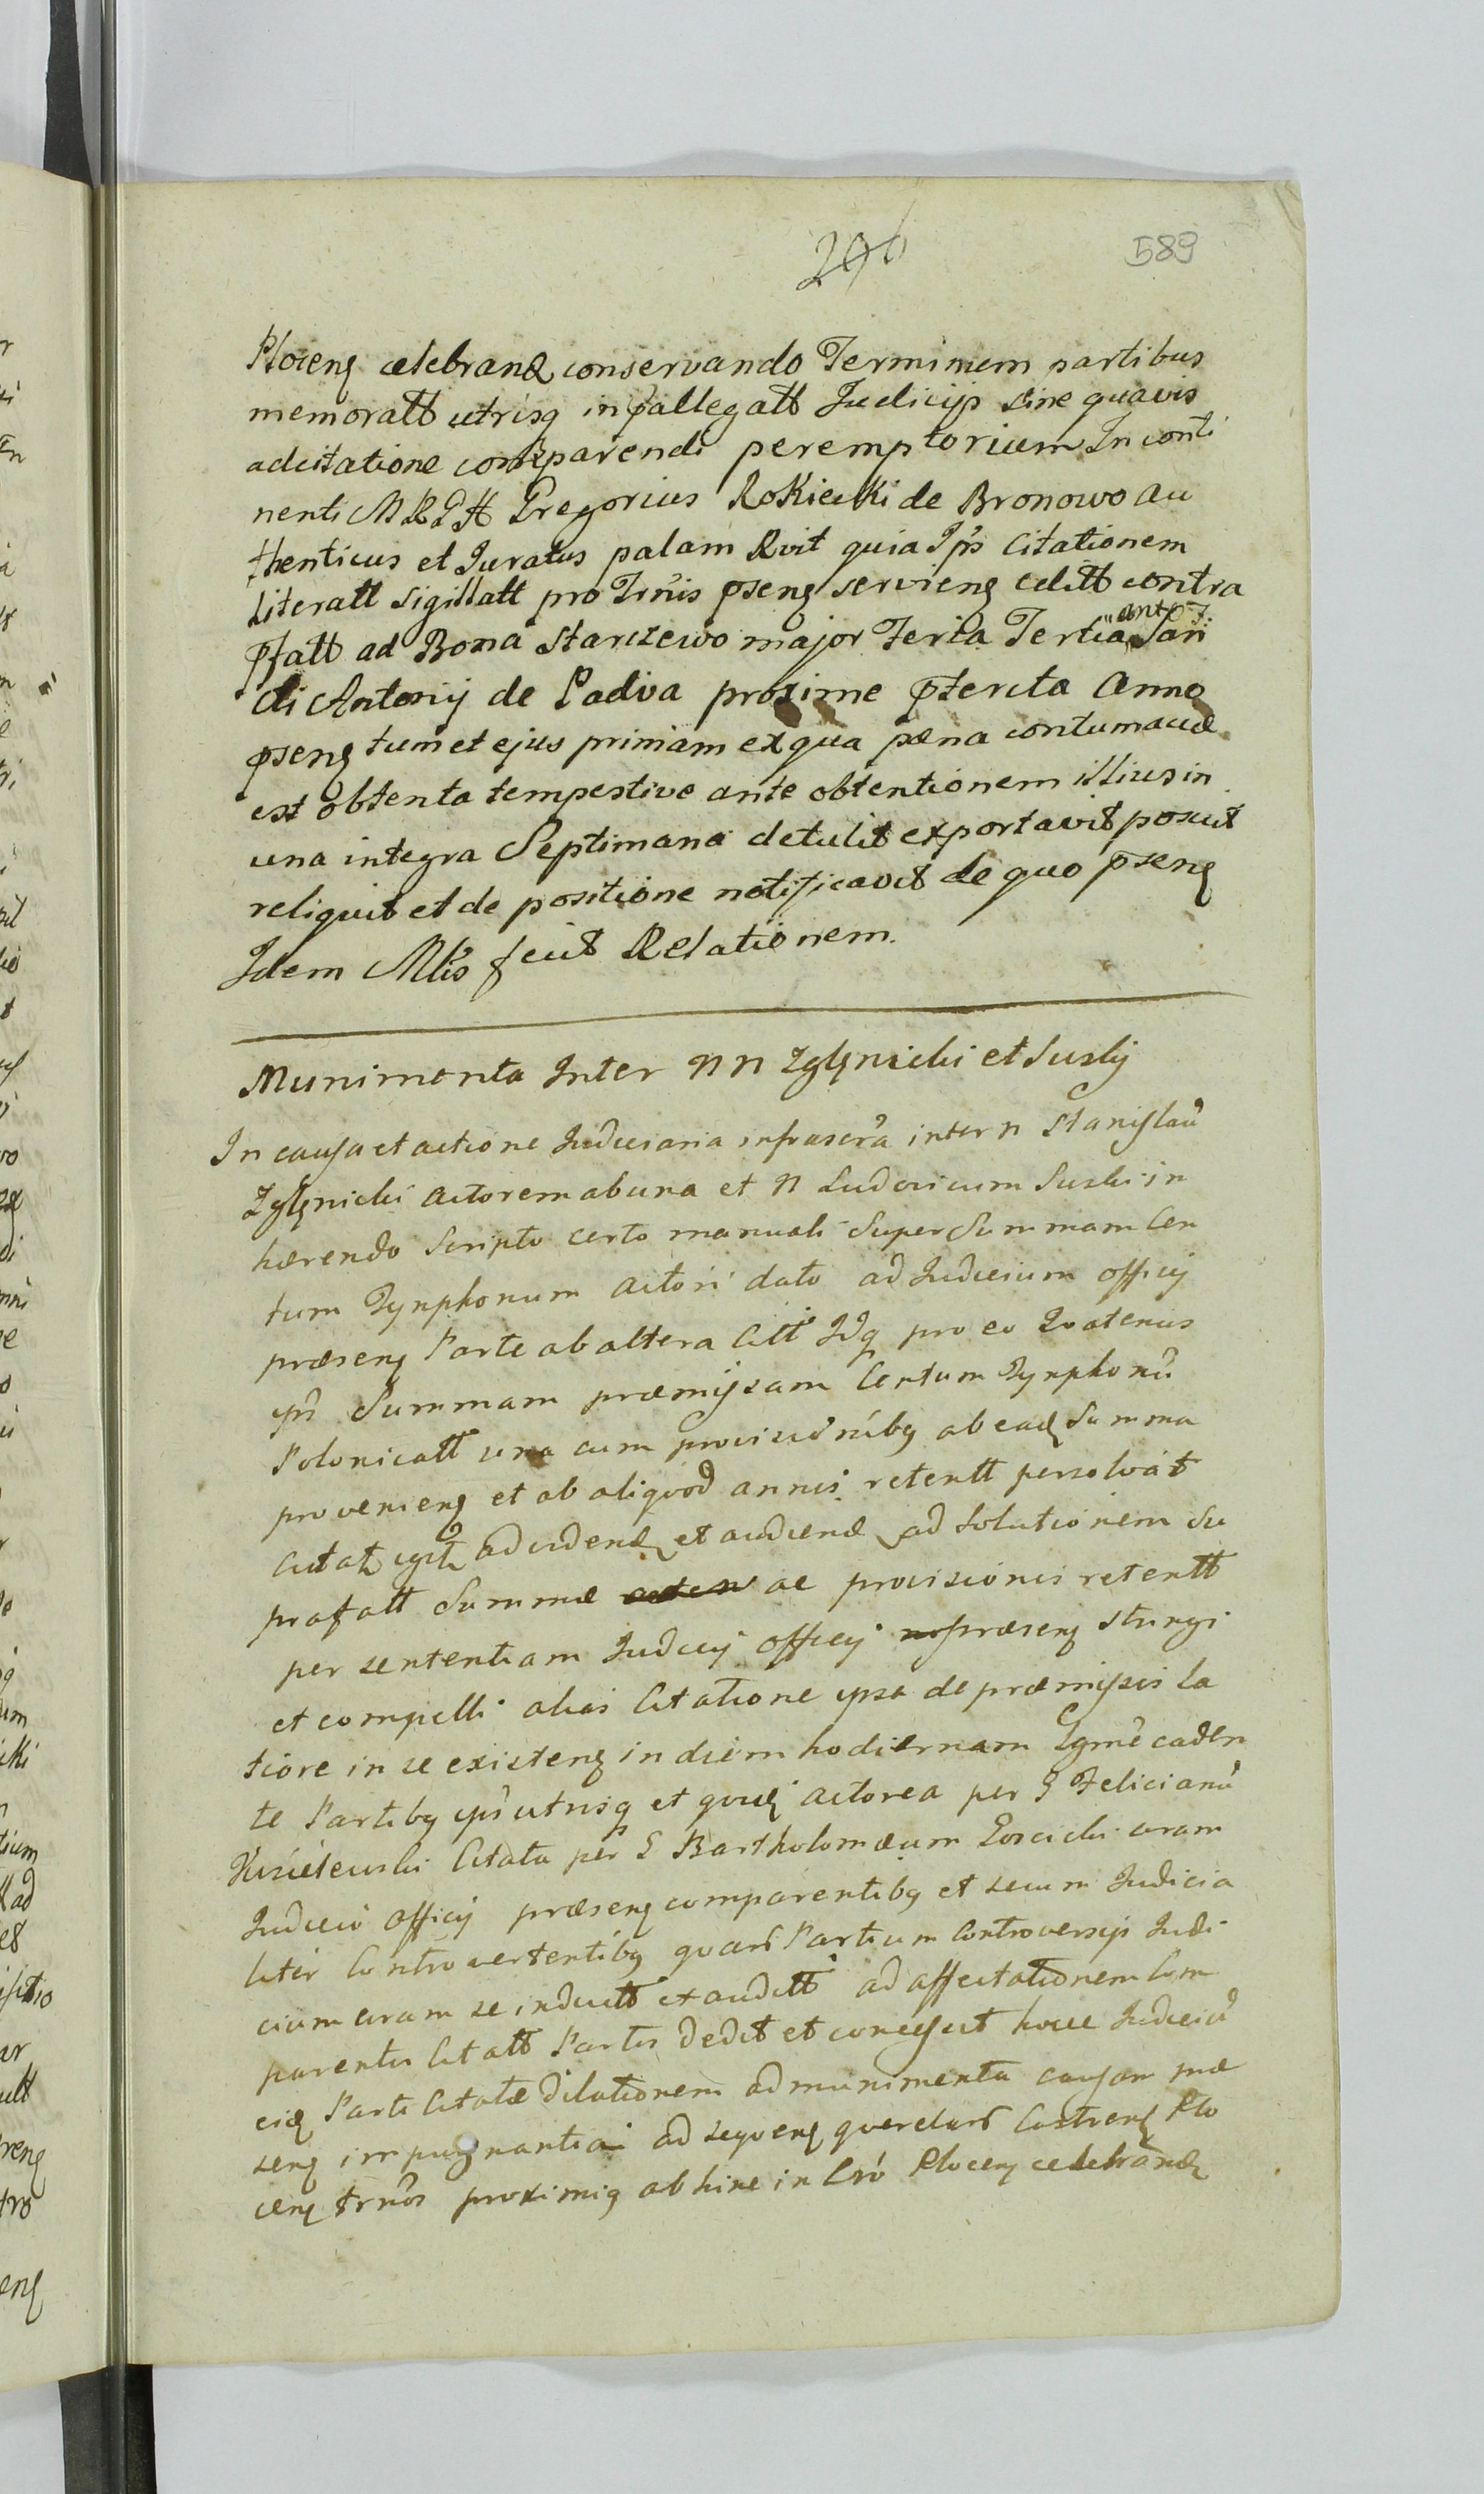 296
589
Ploceng celebrand conservando Terminum partibus
memoratt utrisq in pallegatt Judicijs sine quavis
adcitatione comparendi peremptorium In conti
nenti MRGH Gregorius Rokicki de Bronowo au
thenticus et Juratus palam Rvit quia Jps Citationem
Literatt Sigillatt pro Trnis pseng servieng editt contra
pfatt ad Bona Starczewo major Feria Tertia ante F. San
cti Antonij de Padva proxime pterita Anno
pseng tum et ejus primam ex qua pæna contumaciæ
est obtenta tempestive ante obtentionem illius in
una integra Septimana detulit exportavit posuit
reliquit et de positione notificavit de quo pseng
Idem Mlis fecit Relationem.
Munimenta Inter NN Zglenicki et Suski
In causa et actione Judiciaria infrascra inter N Stanislau
Zglenicki actorem ab una et N Ludovicum Suski in
hærendo Scripto certo manuali Super Summam Cen
tum Tynphonum actori dato ad Judicium officij
præseng Parte ab altera Citt Idq pro eo Qvatenus
ipsi Summam præmissam Centum Tynphonu
Polonicatt una cum provisionibg ab eadg Summa
provenieng et ab aliqvod annis retentt persolvat
Citat igit ad vidend et audiend ad solutionem Su
prafatt Summæ ac provisionis retentt
per sententiam Judicij officij præseng stringi
et compelli alias Citatione ipsa de præmissis la
tiore in se existeng in diem hodiernam Lgme caden
te Partibg ipsi utrisq et qvidg actorea per G Felicianu
Kisielewski Citata per G Bartholomæum Goscicki coram
Judicio officij præseng comparentibg et secum Judicia
liter Controvertentibg qvar Partium Controversijs Judi
cium coram se inductt exauditt ad affectationem Com
parentis Citatt Partis dedit et concessit hocce Judiciu
eidg Parti Citatæ dilationem ad munimenta causam præ
seng impugnantia ad seqveng qverelar Castreng Plo
ceng trnos proximig abhinc in Cro Ploceng celebrandg